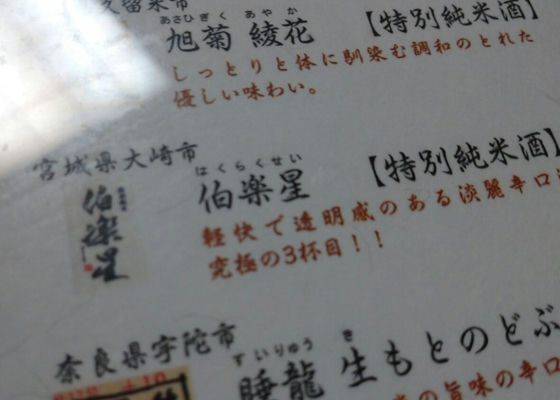 久留米市
あさひぎく あやか
旭菊 綾花 【特別純米酒】
しっとりと体に馴染む調和のとれた
優しい味わい。
宮城県大崎市
はくらくせい
伯楽星 【特別純米酒】
伯楽星
軽快で透明感のある淡麗辛口
究極の3杯目！！
奈良県宇陀市
すいりゅう き
睡龍 生もとのどぶ
の旨味の辛口